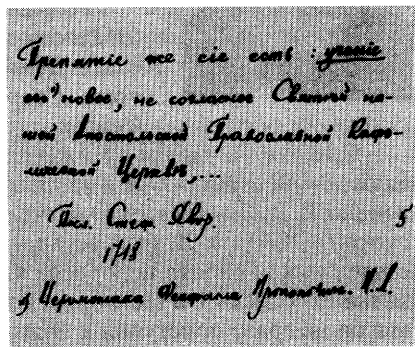 Препятіе же сіе есть : ученіе
его¹⁾ новое, не согласное Святѣй на-
шей Апостольской Православной Кафо-
лической Церквѣ,...
Посл. Стеф. Явор. 5
1718
1) Иеромонаха Феофана Прокоповича. И. Д.